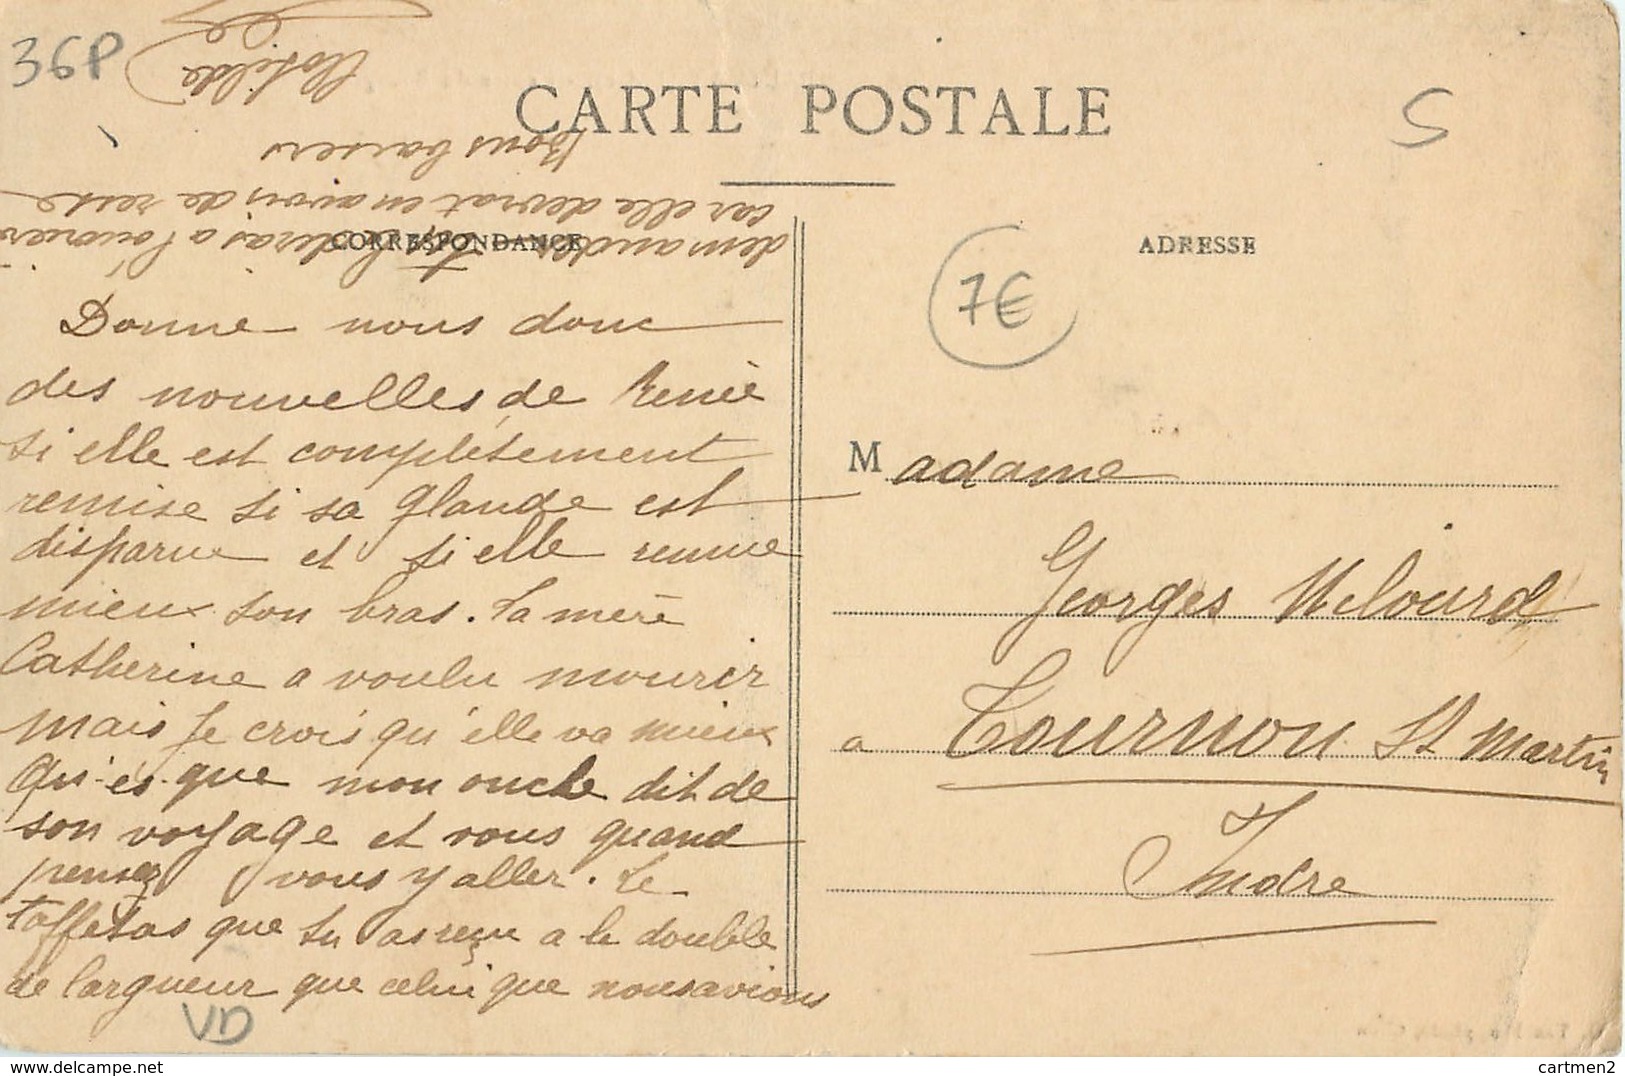 36P
S
CARTE POSTALE
CORRESPONDANCE
ADRESSE
7€
Donne nous donc
des nouvelles de Renée
si elle est complétement
remise si sa glande est
disparue et si elle remue
mieux son bras. La mère
Catherine a voulu mourir
mais je crois qu'elle va mieux
Qu'es-que mon oncle dit de
son voyage et vous quand
pensez vous y aller. Le
taffetas que tu as reçu a le double
de largueur que celui que nous avions
demandé tu diras a l'ouvrière
car elle devrat en avoir de reste
Bons baisers
Clotilde
Madame
Georges
a Tournon St Martin
Indre
VD
delcampe.net
cartmen2